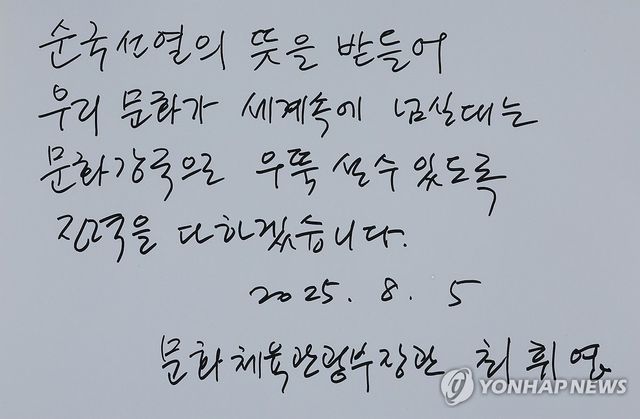 순국선열의 뜻을 받들어
우리 문화가 세계속에 넘실대는
문화강국으로 우뚝 설수 있도록
진력을 다하겠습니다.
2025. 8. 5
문화체육관광부장관 최휘영
YONHAP NEWS